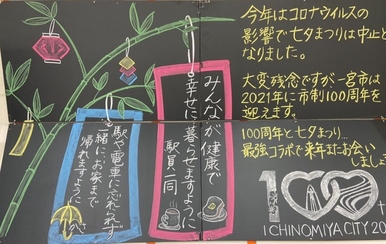 今年はコロナウイルスの
影響で七夕まつりは中止と
なりました。
大変残念ですが一宮市は
2021年に市制100周年を
迎えます。
100周年と七夕まつり…
最強コラボで来年またお会い
しましょ
100
ICHINOMIYA CITY 20
みんなが健康で
幸せに暮らせますように
駅員一同
駅や電車に忘れられず
一緒に、お家まで
帰れますように
かさ